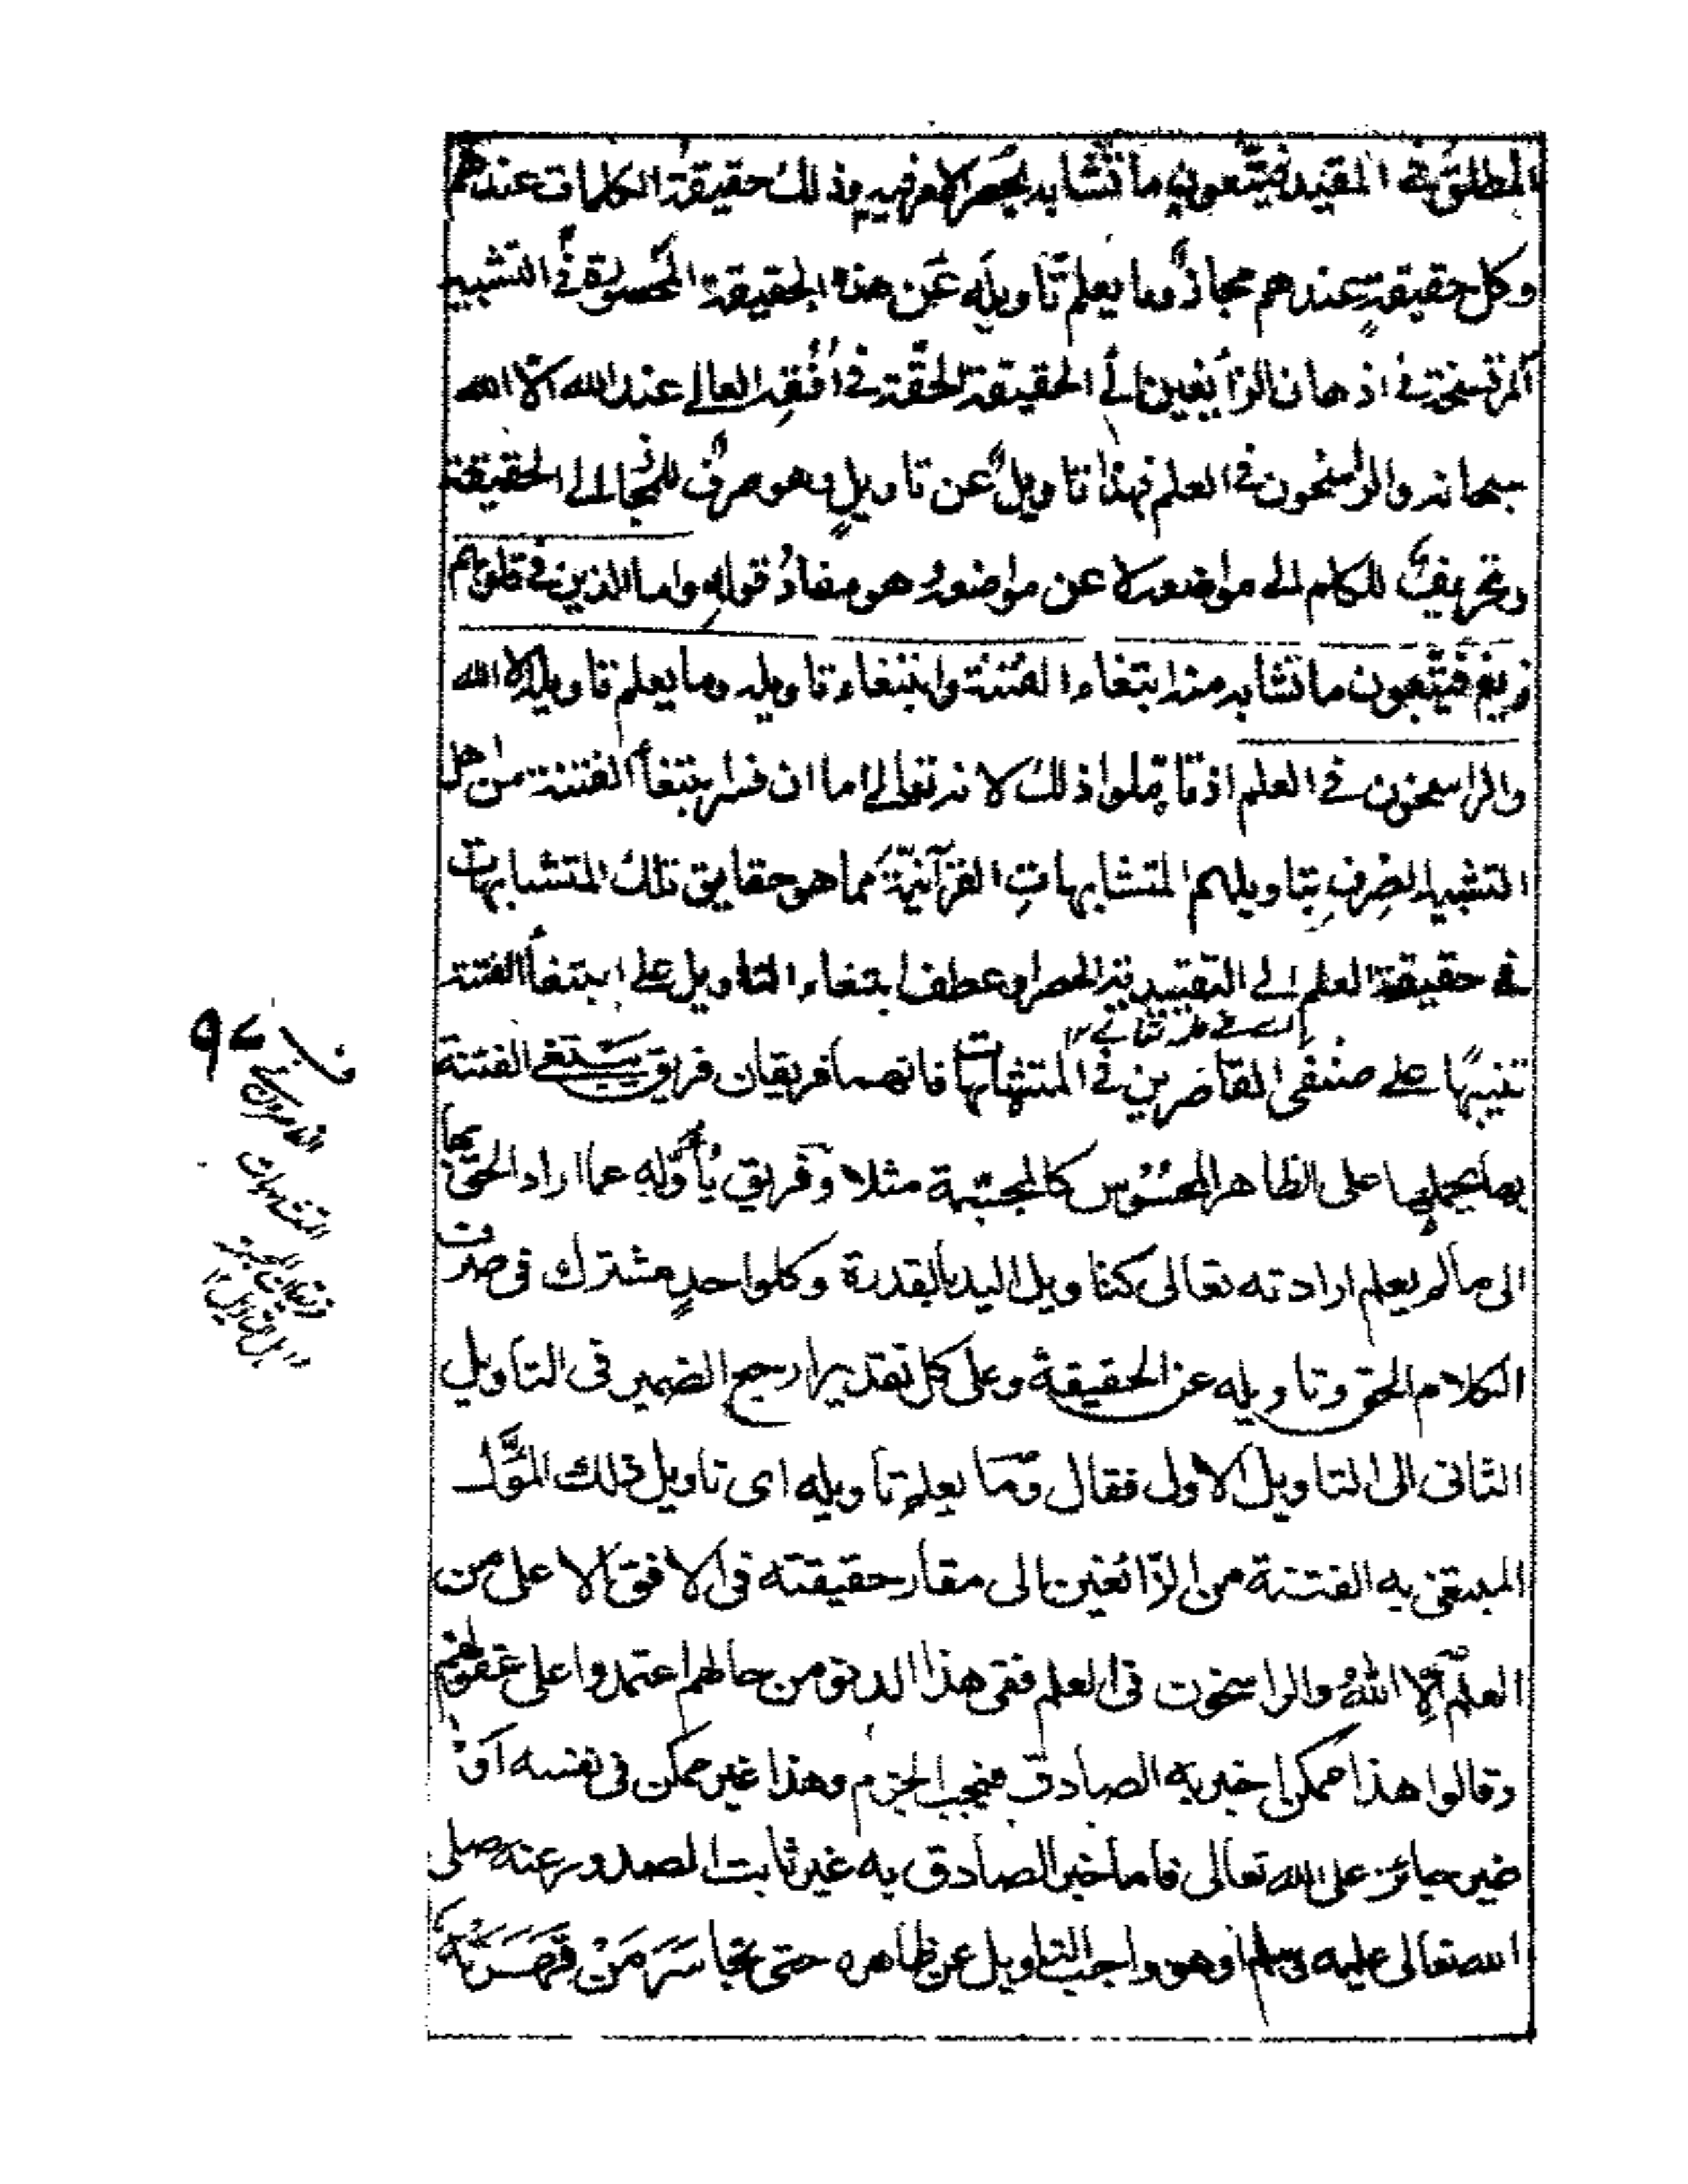 المطلق في المقيد فيتبعون ما تشابه بحصر الامر فيه وذلك حقيقة الكلمات عندهم
وكل حقيقةٍ عندهم مجازٌ وما يعلم تاويله عن هذه الحقيقة المحسوسة في التشبيه
المرتسخة في اذهان الزائغين الى الحقيقة الحقّة في اُفُقِه العالي عند الله الا الله
سبحانه والراسخون في العلم فهذا تاويلٌ عن تاويلٍ وهو صرفٌ للمجاز الى الحقيقة
وتحريفٌ للكلم الى مواضعه لا عن مواضعه هو مفادُ قوله واما الذين في قلوبهم
زيغ فيتّبعون ما تشابه منه ابتغاء الفتنة وابتغاء تاويله وما يعلم تاويله الا الله
والراسخون في العلم اذ تاملوا ذلك لانه تعالى اما ان فسر ابتغاء الفتنة من اهل
التشبيه الصِرفِ بتاويلهم المتشابهاتِ القرآنيّة مما هو حقايق تلك المتشابهات
في حقيقة العلم الى التقييد به الحصر او عطف ابتغاء التاويل على ابتغاء الفتنة
تنبيهًا على صنفي القاصرين في المتشابهات فانهما فريقان فريق يبتغى الفتنة
بها يحملها على الظاهر المحسوس كالمجسّمة مثلا وفريق يأوّله عما اراد الحق بها
الى ما لم يعلم ارادته تعالى كتاويل اليد بالقدرة وكلواحدٍ مشترك فى صرف
الكلام الحق وتاويله عن الحقيقة وعلى كل تقدير ارجع الضمير فى التاويل
الثانى الى التاويل الاولى فقال وَمَا يعلم تاويله اى تاويل ذلك المؤَّل
المبتغى به الفتنة من الزّائغين الى مقار حقيقته فى الافق الاعلى من
العلم إلا اللهُ والراسخون فى العلم ففى هذا الدنو من حالهم اعتمدوا على عقولهم
وقالوا هذا ممكن اخبر به الصادق فيجب الجزم وهذا غير ممكن فى نفسه اَوْ
غير جائز على الله تعالى فاما اخبر الصادق به غير ثابت الصدور عنه صلى
الله تعالى عليه وسلم او هو واجب التاويل عن ظاهره حتى تجاسَرَ مَنْ قَهَرَتْهُ